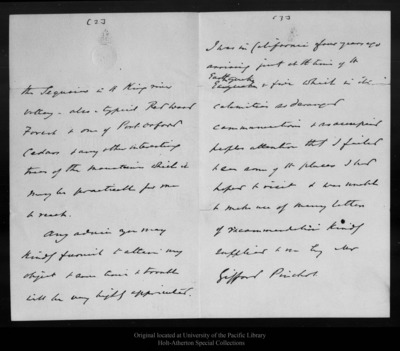 (2)
the Sequoias in the King river
valley - also - typical Redwood
Forest & one of Port Orford
Cedars & any other interesting
trees of the mountains which it
may be practicable for me
to reach.
Any advice you may
kindly furnish to attain my
object & save time & trouble
will be very highly appreciated.
(3)
I was in California four years ago
arriving just at the time of the
Earthquake
& fire which in its
calamities so damaged
communications & so occupied
peoples attention that I failed
to see some of the places I had
hoped to visit & was unable
to make use of many letters
of recommendation kindly
supplied to me by Mr
Gifford Pinchot
Original located at University of the Pacific Library
Holt-Atherton Special Collections